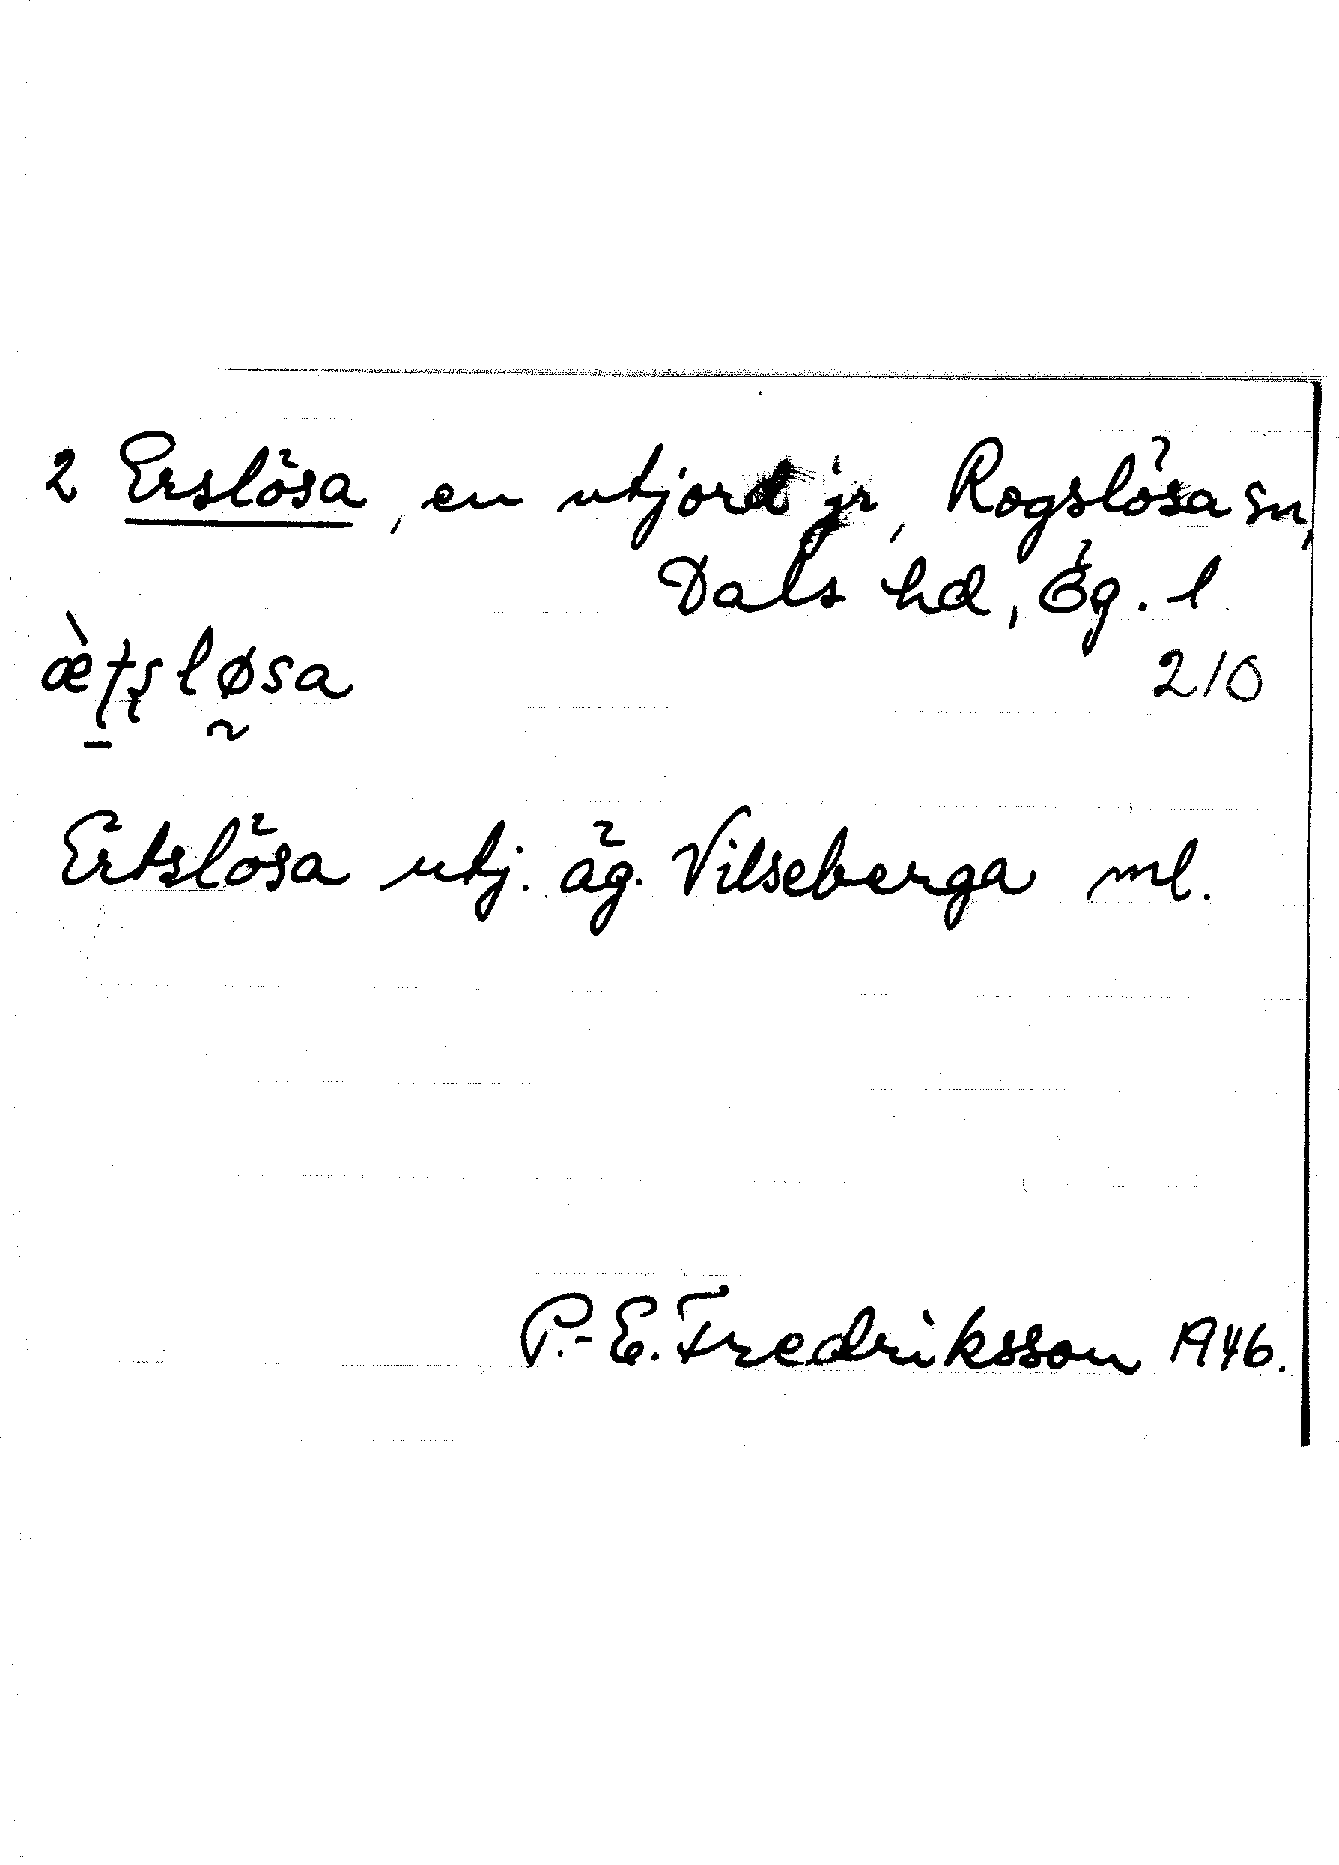 2 Erslösa, en utjord jr, Rogslösa sn,
Dals hd, Ög. l
210
Ertslösa utj. äg. Vilseberga ml.
P.-E. Fredriksson 1946.